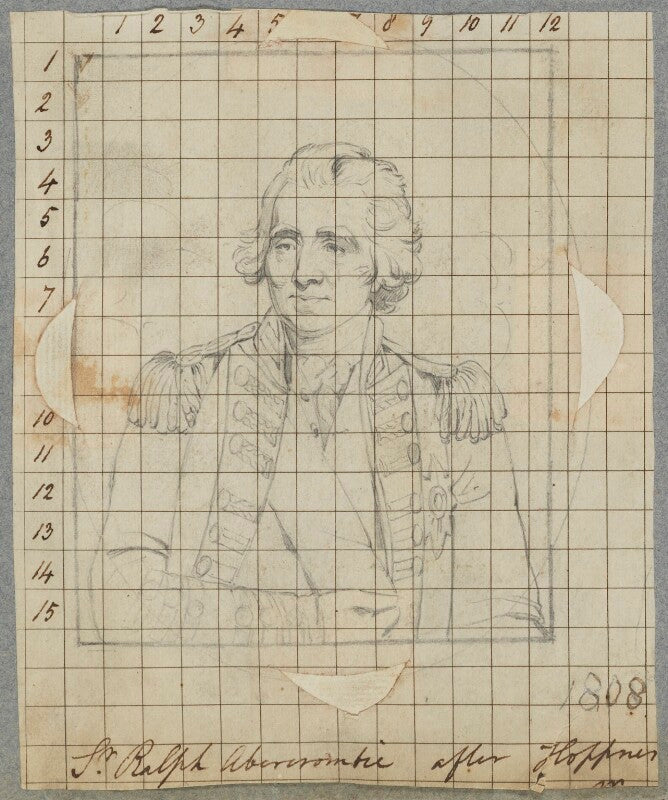 1 2 3 4 5 7 8 9 10 11 12
1
2
3
4
5
6
7
10
11
12
13
14
15
1808
Sr Ralph Abercrombie after Hoppner